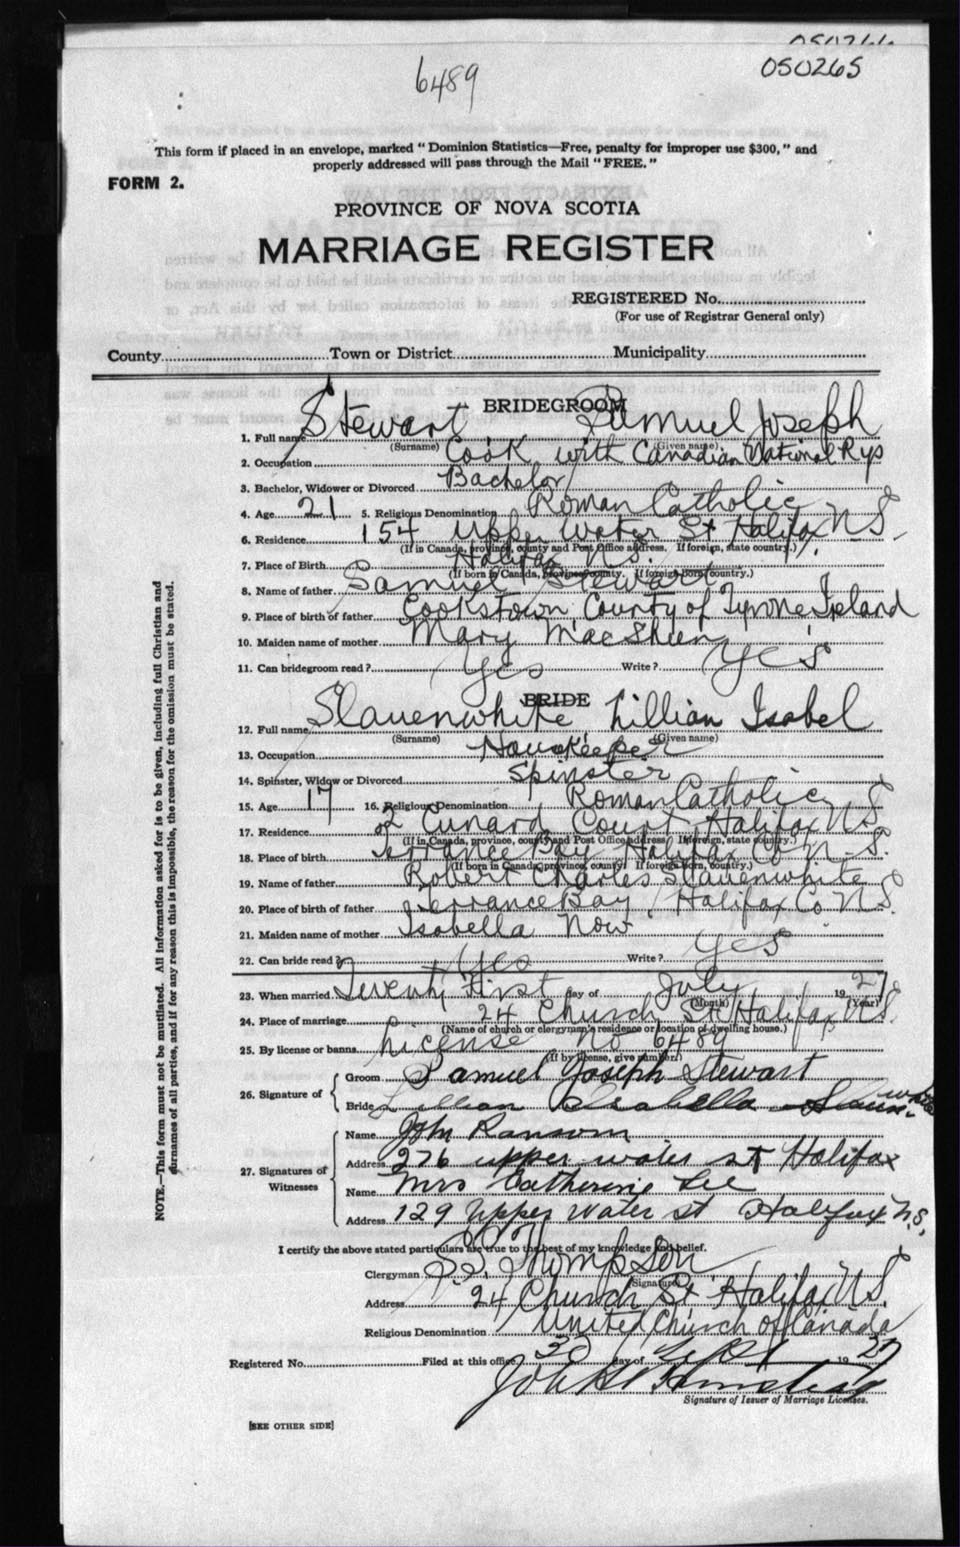 050265
6489
This form if placed in an envelope, marked "Dominion Statistics—Free, penalty for improper use $300," and
properly addressed will pass through the Mail "FREE."
FORM 2.
PROVINCE OF NOVA SCOTIA
MARRIAGE REGISTER
REGISTERED No.
(For use of Registrar General only)
County Town or District Municipality
BRIDEGROOM
1. Full name Stewart Samuel Joseph
(Surname) (Given name)
2. Occupation Cook with Canadian National Rys
3. Bachelor, Widower or Divorced Bachelor
4. Age 21 5. Religious Denomination Roman Catholic
6. Residence 154 Upper Water St Halifax N S
(If in Canada, province, county and Post Office address. If foreign, state country.)
7. Place of Birth Halifax N S
(If born in Canada, province, county. If foreign born, country.)
8. Name of father Samuel Stewart
9. Place of birth of father Cookstown County of Tyrone Ireland
10. Maiden name of mother Mary
11. Can bridegroom read? Yes Write? Yes
BRIDE
12. Full name Slauenwhite Lillian Isabel
(Surname) (Given name)
13. Occupation Housekeeper
14. Spinster, Widow or Divorced Spinster
15. Age 17 16. Religious Denomination Roman Catholic
17. Residence 2 Cunard Court Halifax N S
(If in Canada, province, county and Post Office address. If foreign, state country.)
18. Place of birth Terrance Bay Halifax Co N-S.
(If born in Canada, province, county. If foreign born, country.)
19. Name of father Robert Charles Slauenwhite
20. Place of birth of father Terrance Bay Halifax Co N S.
21. Maiden name of mother Isabella Now
22. Can bride read? Yes Write? Yes
23. When married First day of July 1927
(Month) (Year)
24. Place of marriage 24 Church St Halifax N S.
(Name of church or clergyman's residence or location of dwelling house.)
25. By license or banns License No 6489
(If by license, give number.)
26. Signature of
Groom Samuel Joseph Stewart
Bride Lillian Isabella Slauenwhite
27. Signatures of Witnesses
Name John Ransom
Address 276 upper water st Halifax
Name Mrs Catherine Lee
Address 129 Upper Water st Halifax N.S.
I certify the above stated particulars are true to the best of my knowledge and belief.
Clergyman Thompson
(Signature)
Address 24 Church St Halifax N S.
Religious Denomination United Church of Canada
Registered No. Filed at this office 30 day of Sept 1927
Signature of Issuer of Marriage Licenses.
[SEE OTHER SIDE]
NOTE.—This form must not be mutilated. All information asked for is to be given, including full Christian and
surnames of all parties, and if for any reason this is impossible, the reason for the omission must be stated.